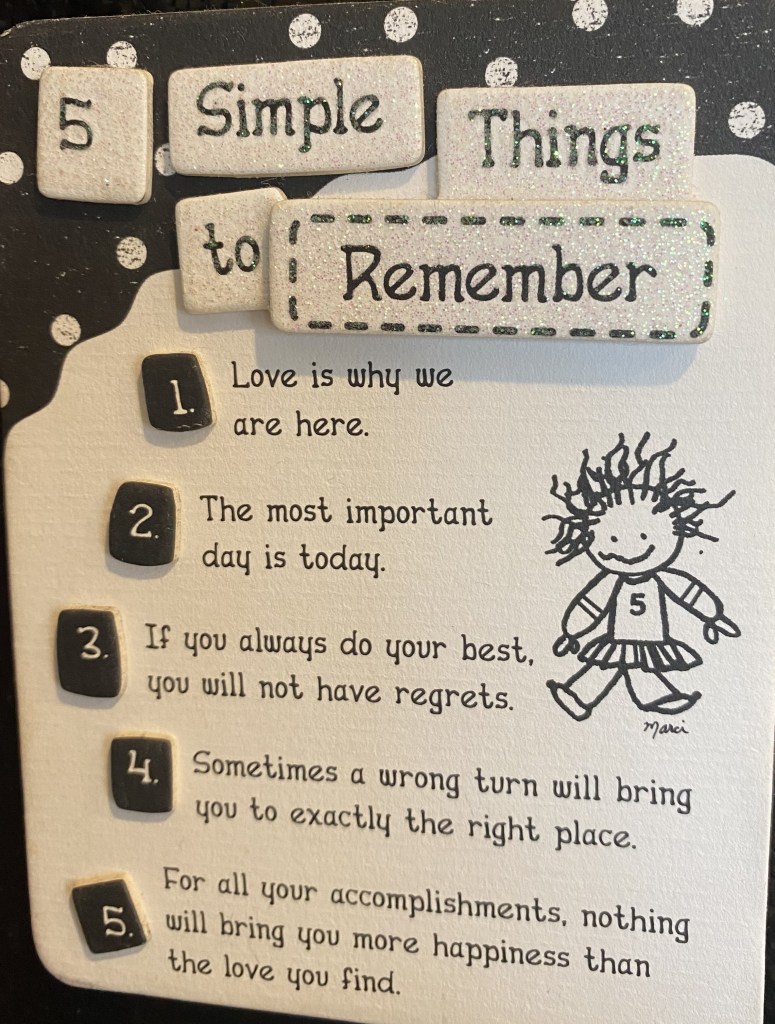 5 Simple Things
to Remember
1. Love is why we
are here.
2. The most important
day is today.
5
3. If you always do your best,
you will not have regrets.
Marci
4. Sometimes a wrong turn will bring
you to exactly the right place.
5. For all your accomplishments, nothing
will bring you more happiness than
the love you find.